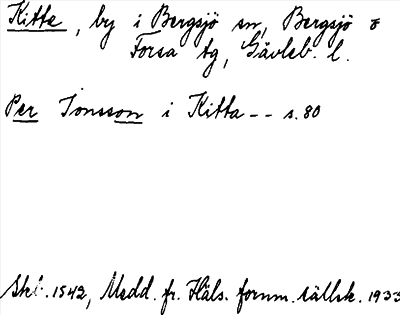 Kitte, by i Bergsjö sn, Bergsjö o
Forsa tg, Gävleb. l.
Per Jonsson i Kitta -- s. 80
Skb. 1542, Medd. fr. Häls. fornm. sällsk. 1933